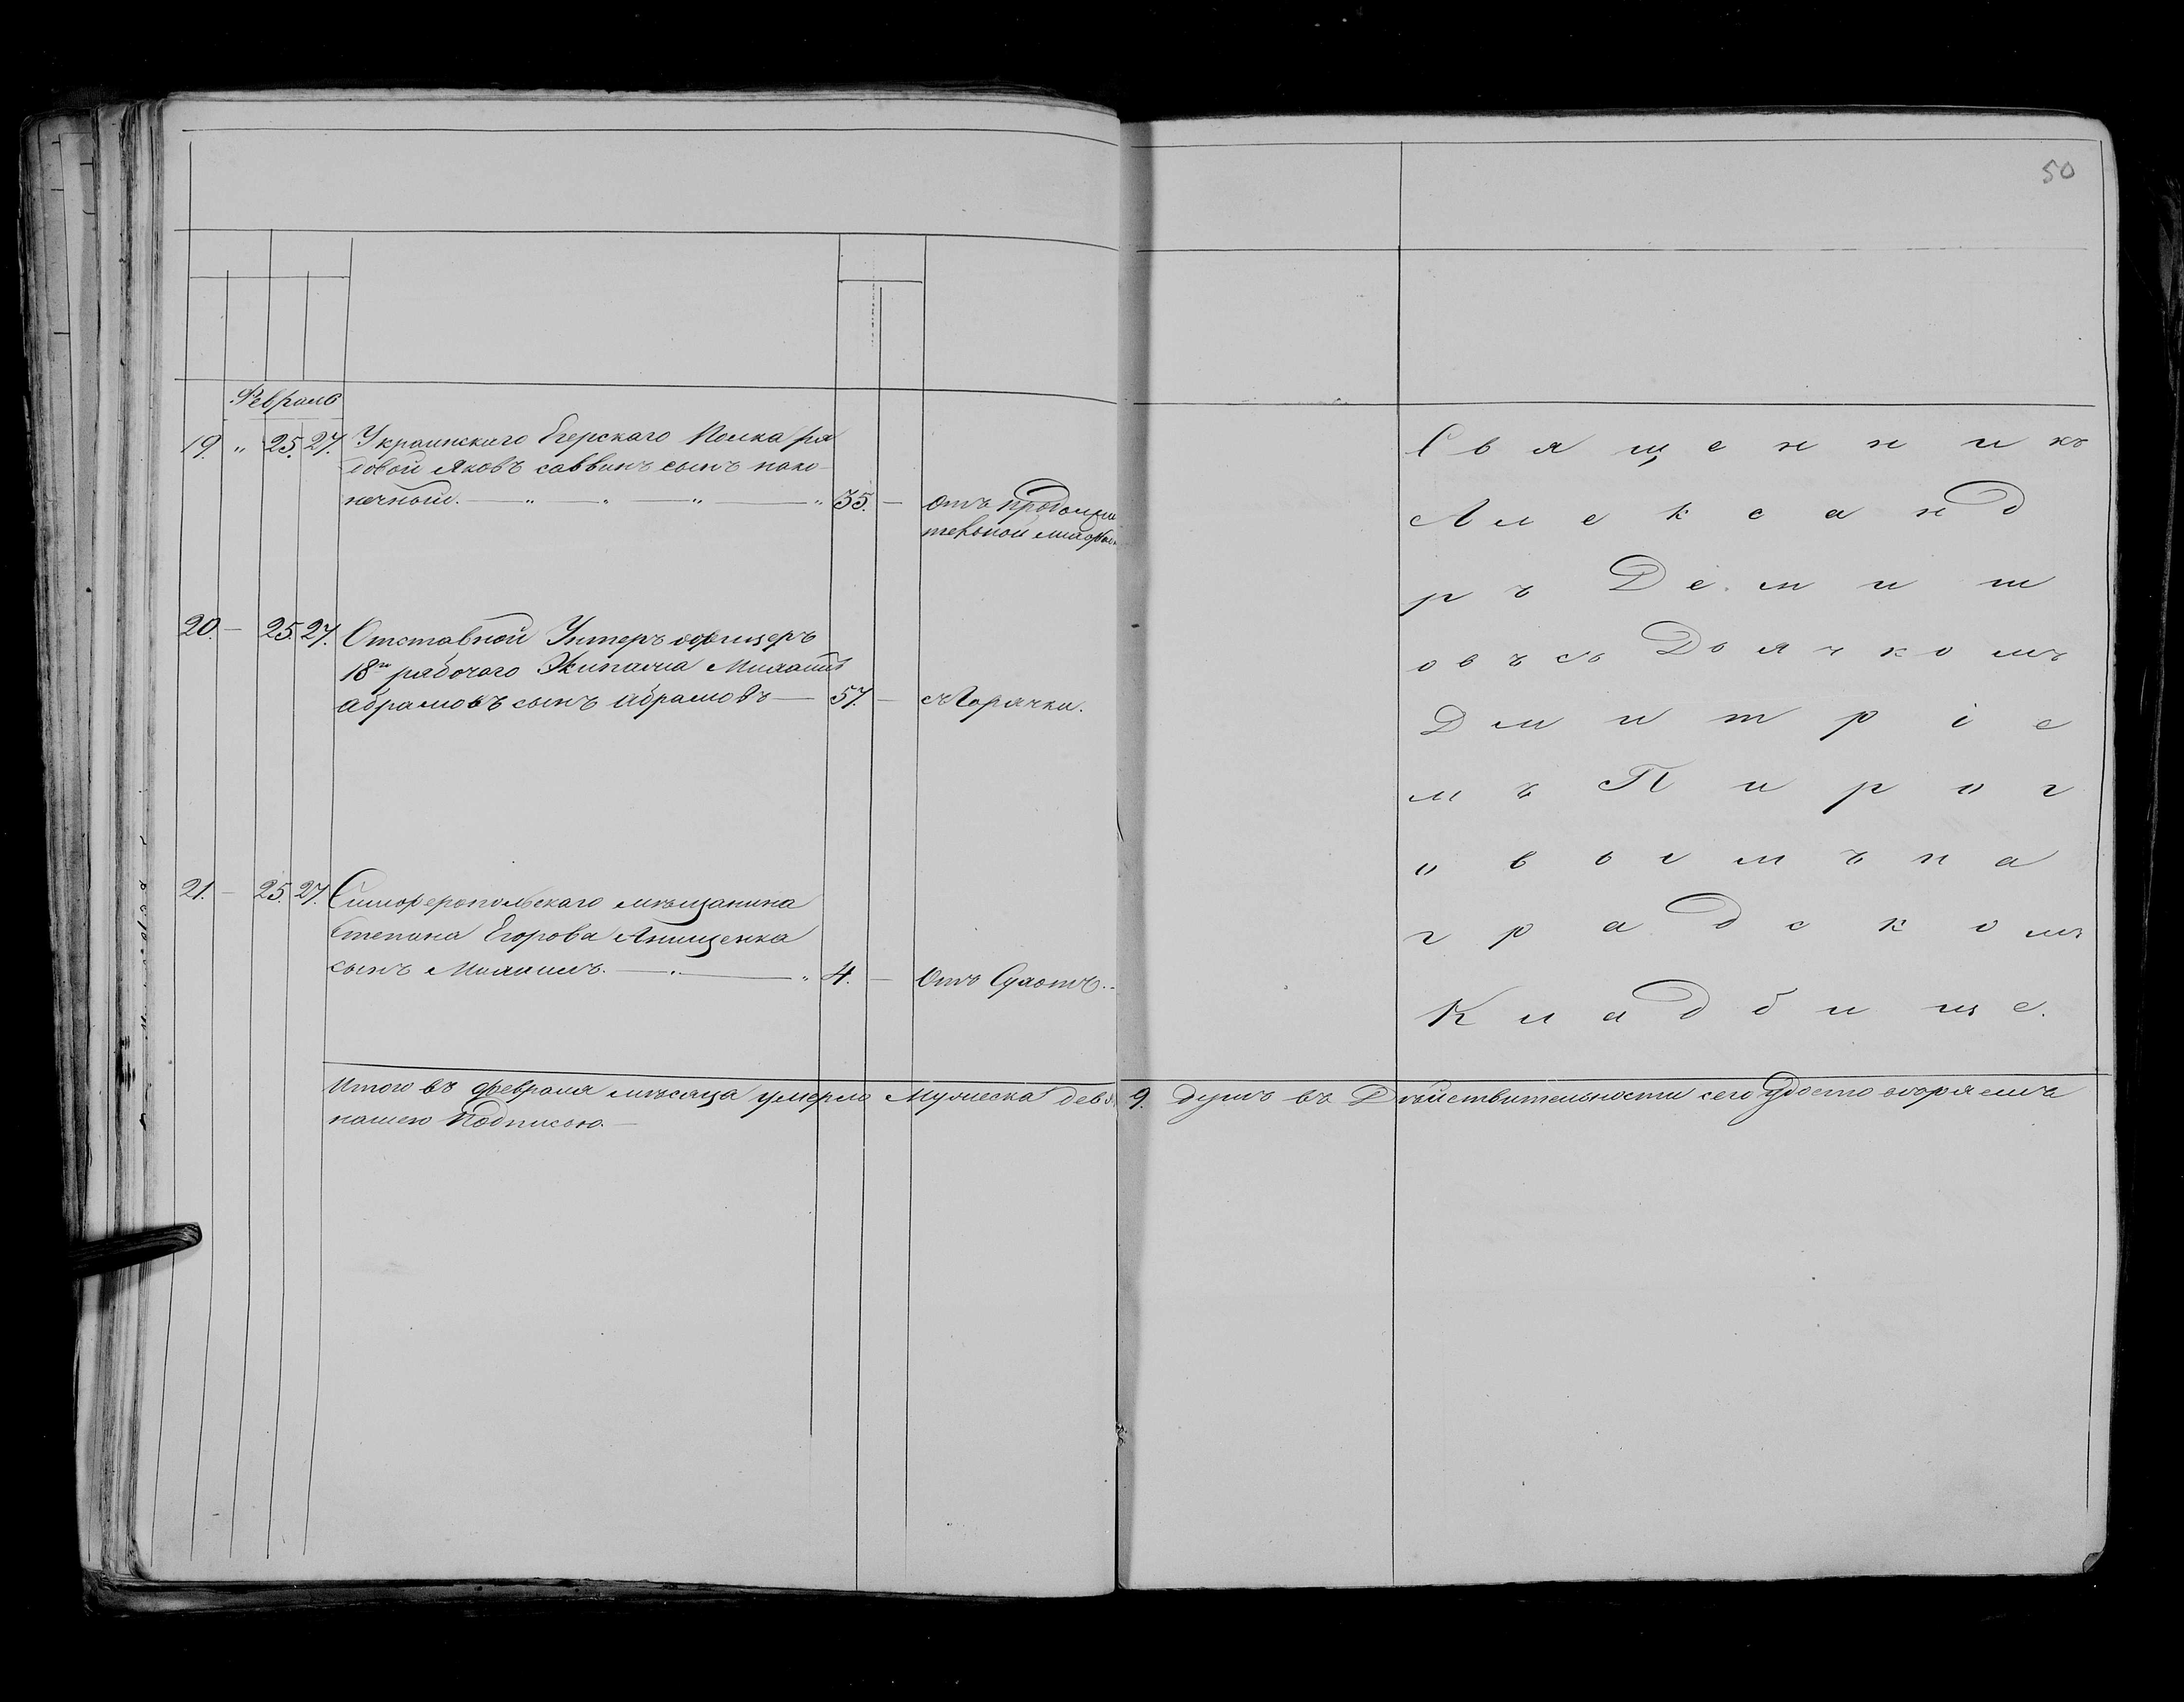 50
Февраль
19. " 25. 27. Украинскаго Егерскаго Полка ря
довой Яковъ саввинъ сынъ нако
нечный. — " — " — " — " 35. — Отъ продолжи
тельной
20. — 25. 27. Отставной Унтеръ офицеръ
18го рабочаго Экипажа Михаилъ
Абрамовъ сынъ Абрамовъ — 57. — Горячки.
21. — 25. 27. Симферопольскаго мѣщанина
Степана Егорова Анищенка
сынъ Михаилъ. — " — " 4. — Отъ Сухотъ.
Священникъ
Александ
ръ Демит
овъ съ Дьячкомъ
Дмитріе
мъ Пирог
овымъ на
градскомъ
Кладбище.
Итого въ февралѣ мѣсяца умерло Мужеска 9. душъ въ Дѣйствительности сего удостоворяемъ
нашею Подписью. —